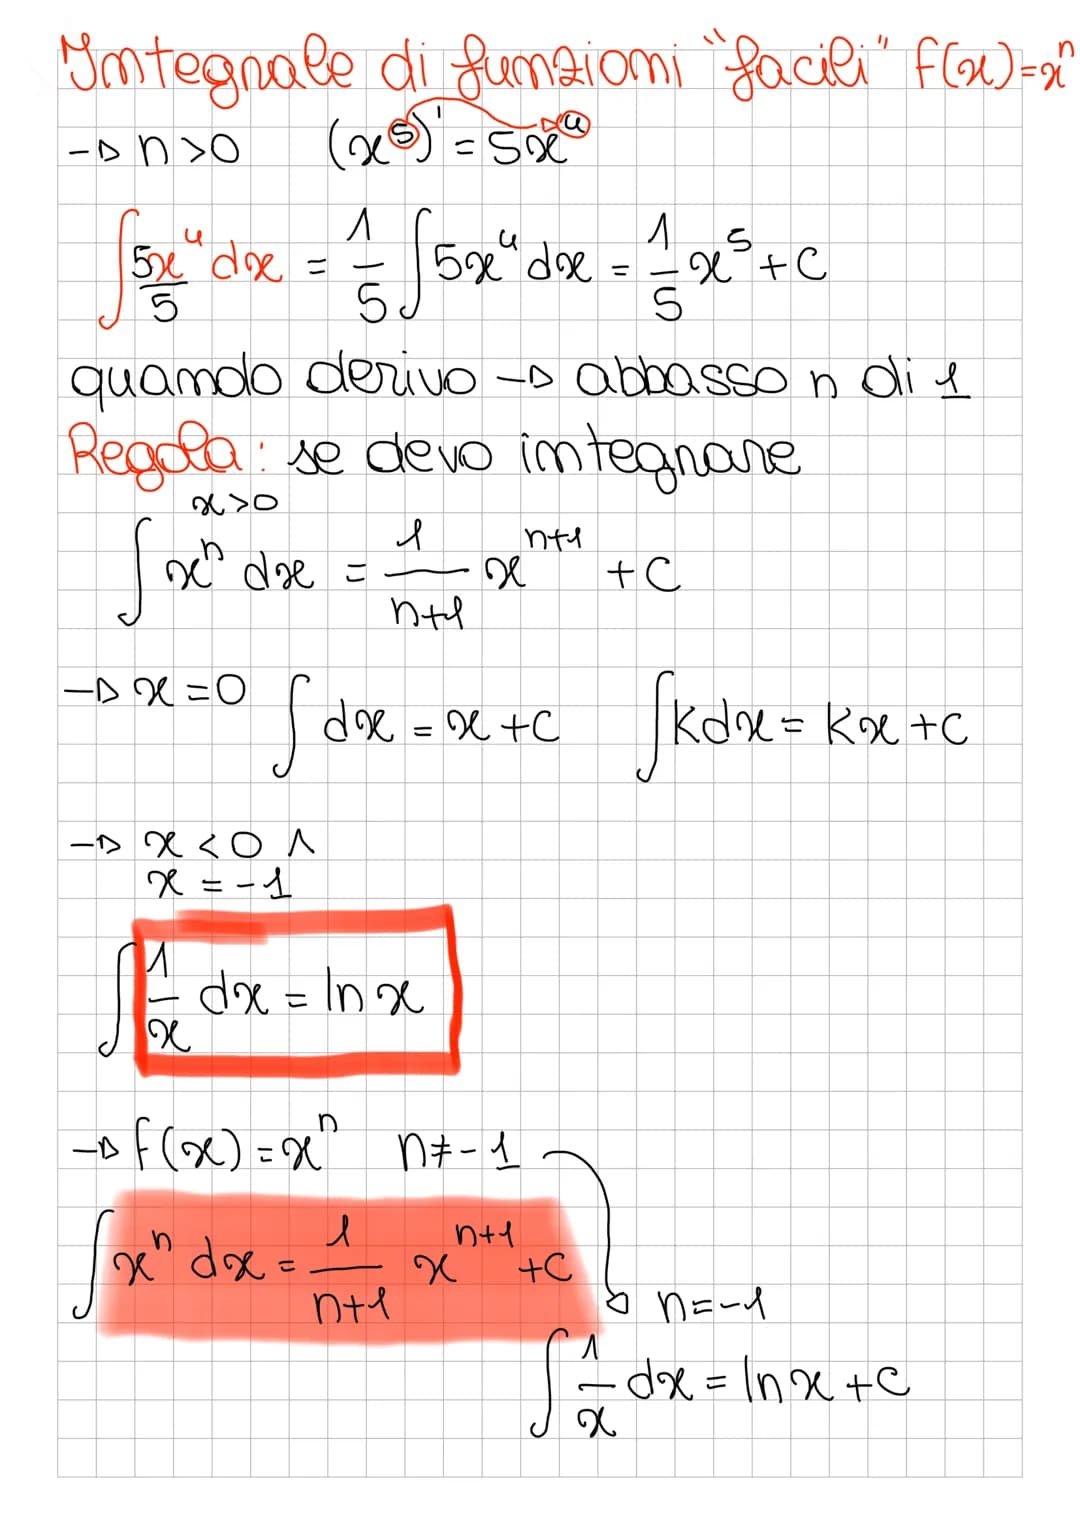 Integrale di funzioni "facili" f(x)=xⁿ
→ n>0 (x⁵)' = 5x⁴
∫ 5x⁴/5 dx = 1/5 ∫ 5x⁴ dx = 1/5 x⁵ + c
quando derivo → abbasso n di 1
Regola: se devo integrare
x>0
∫ xⁿ dx = 1/(n+1) xⁿ⁺¹ + c
→ x=0 ∫ dx = x + c ∫ k dx = kx + c
→ x < 0 ∧
x = -1
∫ 1/x dx = ln x
→ f(x) = xⁿ n ≠ -1
∫ xⁿ dx = 1/(n+1) xⁿ⁺¹ + c
n = -1
∫ 1/x dx = ln x + c